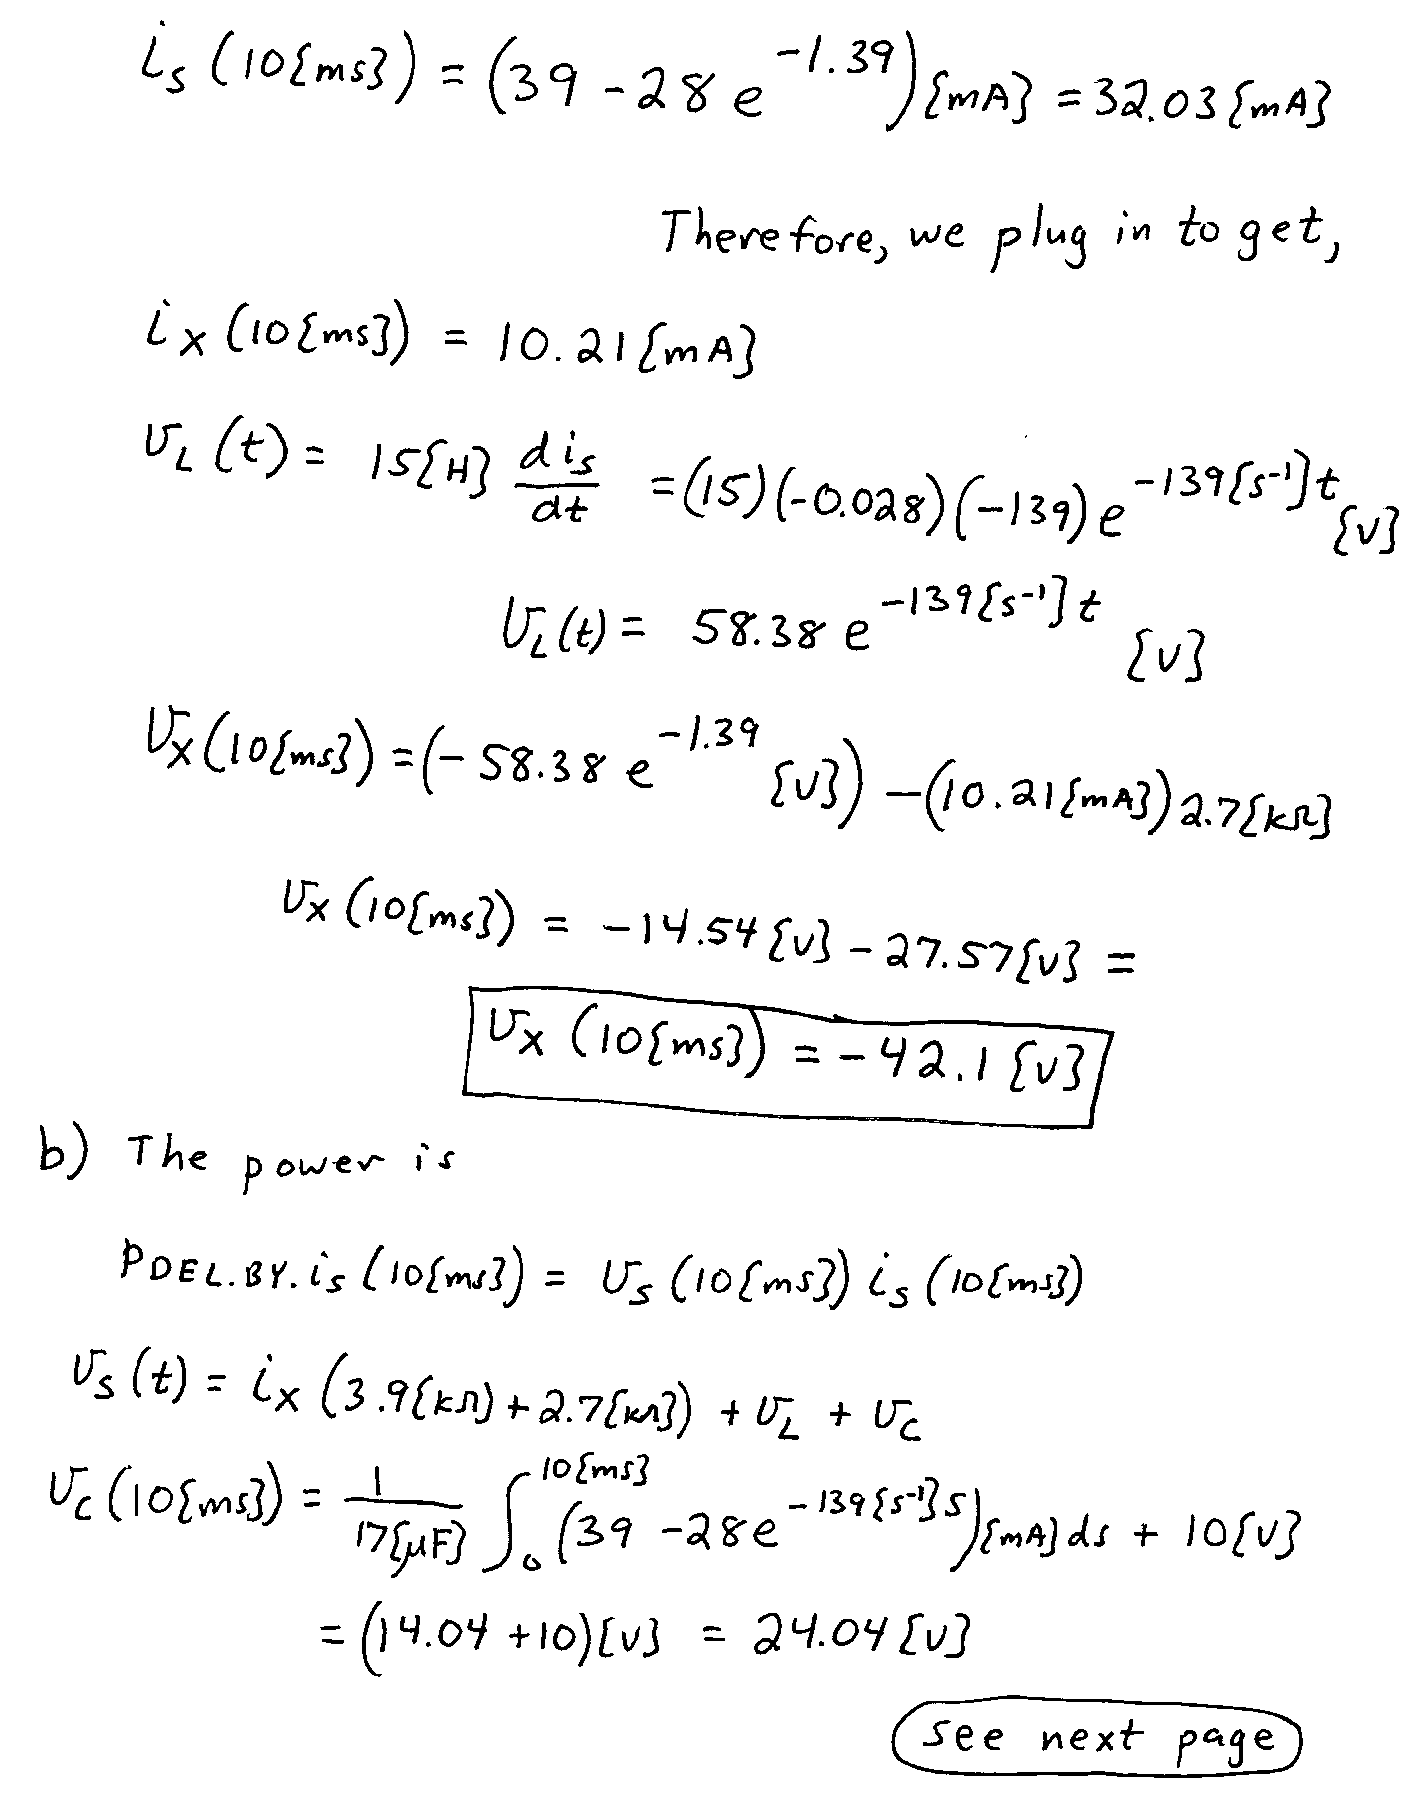 i_s (10{ms}) = (39 - 28 e^-1.39) {mA} = 32.03 {mA}
Therefore, we plug in to get,
i_x (10{ms}) = 10.21 {mA}
v_L (t) = 15{H} d i_s / dt = (15)(-0.028)(-139) e^-139[s^-1]t {V}
v_L (t) = 58.38 e^-139{s^-1}t {V}
v_x (10{ms}) = (-58.38 e^-1.39 {V}) - (10.21{mA}) 2.7{kΩ}
v_x (10{ms}) = -14.54 {V} - 27.57{V} =
v_x (10{ms}) = -42.1 {V}
b) The power is
P_DEL.BY.i_s (10{ms}) = v_s (10{ms}) i_s (10{ms})
v_s (t) = i_x (3.9{kΩ} + 2.7{kΩ}) + v_L + v_C
v_c (10{ms}) = 1 / 17{μF} ∫_0^10{ms} (39 - 28e^-139{s^-1}s) {mA} ds + 10{V}
= (14.04 + 10){V} = 24.04 {V}
see next page